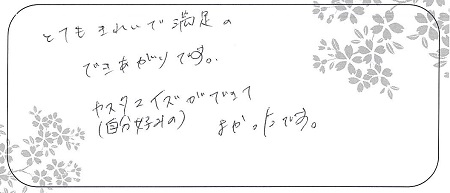 とてもきれいで満足の
できあがりです。
カスタマイズができて
(自分好みの)
よかったです。